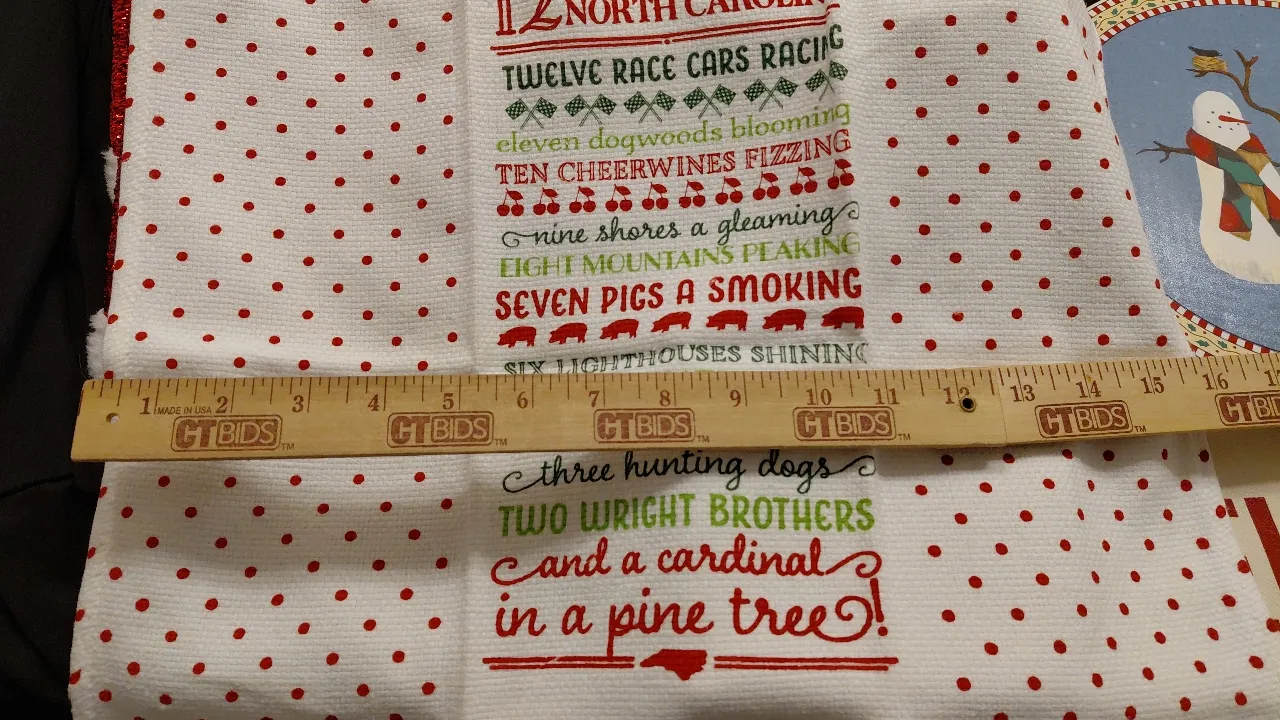 12 NORTH CAROLIN
TWELVE RACE CARS RACING
eleven dogwoods blooming
TEN CHEERWINES FIZZING
nine shores a gleaming
EIGHT MOUNTAINS PEAKING
SEVEN PIGS A SMOKING
SIX LIGHTHOUSES SHINING
1 2 3 4 5 6 7 8 9 10 11 12 13 14 15 16
MADE IN USA
CTBIDS™ CTBIDS™ CTBIDS™ CTBIDS™ CTBIDS™ CTBI
three hunting dogs
TWO WRIGHT BROTHERS
and a cardinal
in a pine tree!